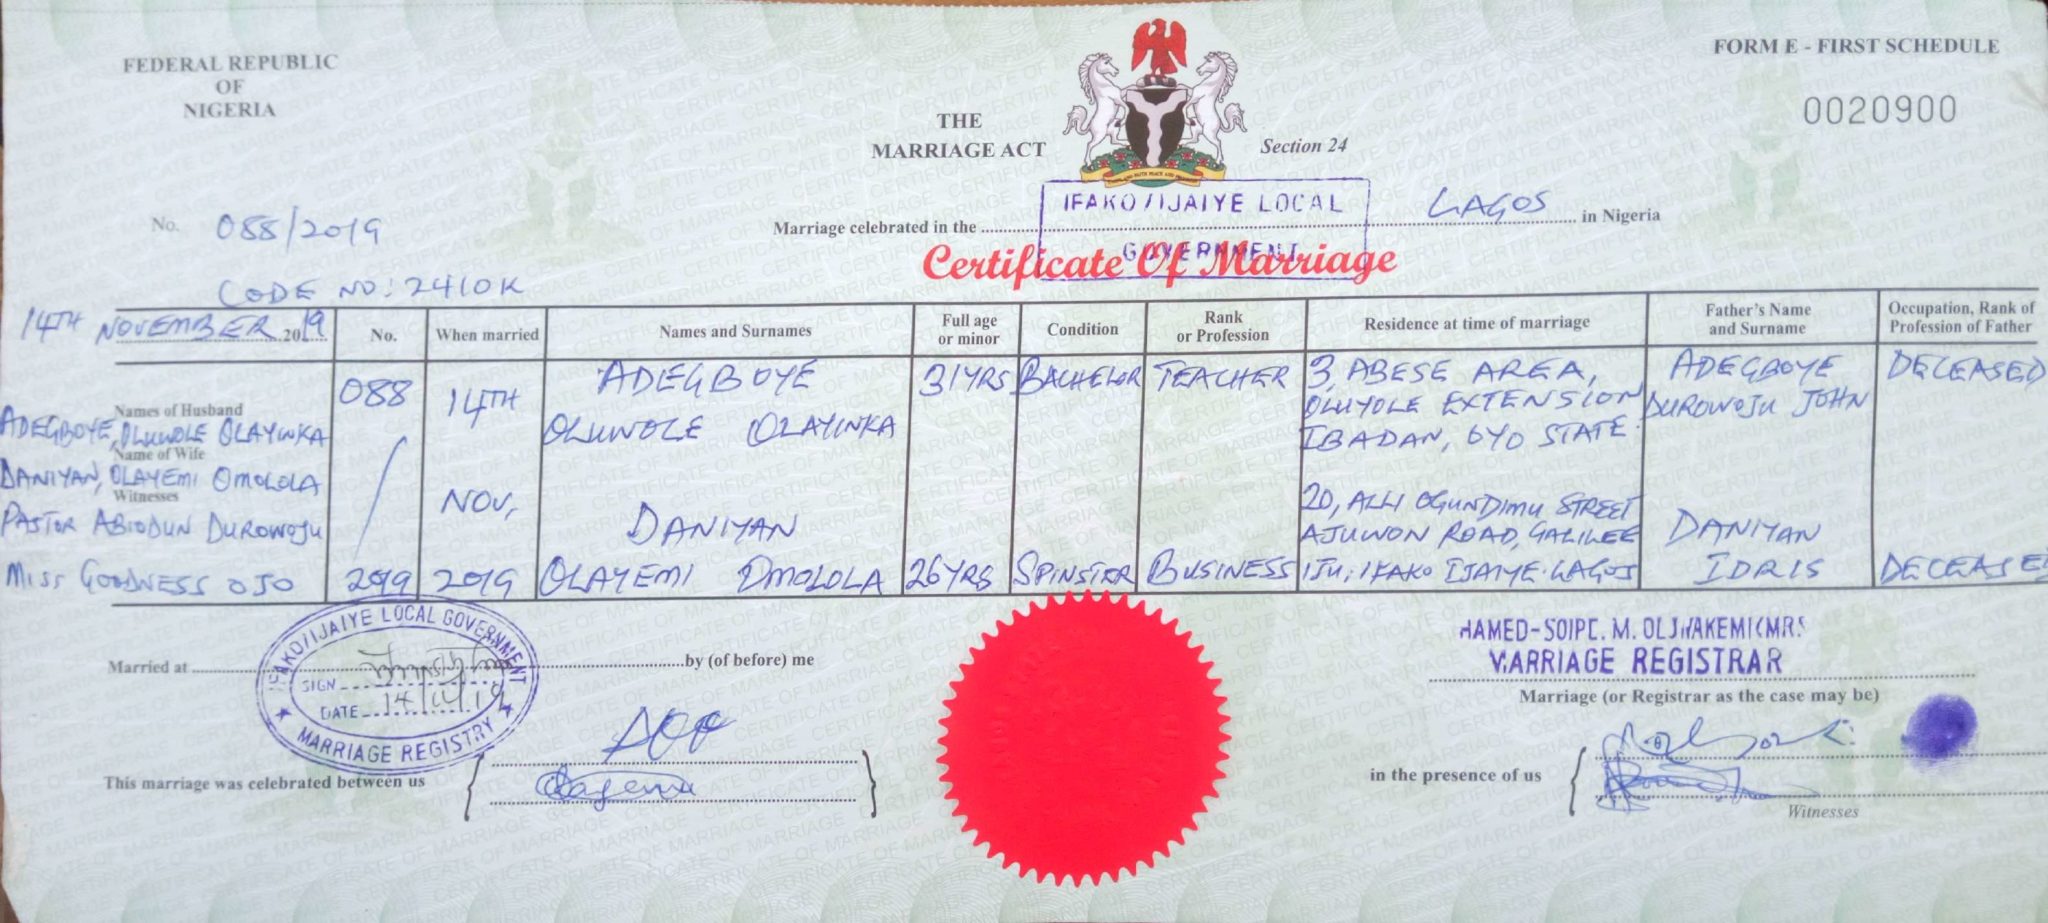 FEDERAL REPUBLIC
OF
NIGERIA
FORM E - FIRST SCHEDULE
0020900
THE
MARRIAGE ACT
Section 24
No. 088/2019
CODE NO: 2410K
Marriage celebrated in the IFAKO/IJAIYE LOCAL GOVERNMENT LAGOS in Nigeria
Certificate Of Marriage
14TH NOVEMBER 2019
No.
When married
Names and Surnames
Full age or minor
Condition
Rank or Profession
Residence at time of marriage
Father's Name and Surname
Occupation, Rank of Profession of Father
Names of Husband
ADEGBOYE, OLUWOLE OLAYINKA
Name of Wife
DANIYAN, OLAYEMI OMOLOLA
Witnesses
PASTOR ABIODUN DUROWOJU
MISS GOODNESS OJO
088
/
2019
14TH
NOV,
2019
ADEGBOYE
OLUWOLE OLAYINKA
31YRS
BACHELOR
TEACHER
3, ABESE AREA,
OLUYOLE EXTENSION
IBADAN, OYO STATE.
ADEGBOYE
DUROWOJU JOHN
DECEASED
DANIYAN
OLAYEMI OMOLOLA
26YRS
SPINSTER
BUSINESS
20, ALLI OGUNDIMU STREET
AJUWON ROAD, GALILEE
IJU, IFAKO IJAIYE. LAGOS
DANIYAN
IDRIS
DECEASED
Married at by (of before) me
IFAKO/IJAIYE LOCAL GOVERNMENT
SIGN
DATE 14/11/19
MARRIAGE REGISTRY
M. OLUWAKEMI (MRS
MARRIAGE REGISTRAR
Marriage (or Registrar as the case may be)
This marriage was celebrated between us
in the presence of us
Witnesses